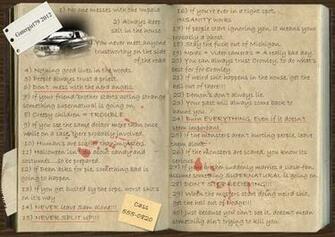 Comergirl79 2012
1) No one messes with the Impala
2) Always keep
salt in the house
3) You never meet anyone
trustworthy on the side
of the road
4) Nothing good lives in the woods.
5) Prior always trust a priest.
6) Don't mess with the nerd angels.
7) If your friend/brother starts acting strange
something supernatural is going on.
8) Creepy children = TROUBLE.
9) If you see the same doctor more than once
while on a case, he's probably involved.
10) Humans
11) Halloween candy and
costumes...
12) If Dean asks for pie, something bad is
going to happen.
13) If you get busted by the cops, worst shit's
on its way
14) NEVER leave Sam alone!!!
15) NEVER SPLIT UP!!
Call
555-0820
16) If you're ever in a tight spot,
INSANITY works
17) If people start ignoring you, it means your
probably a ghost.
18) Stay the fuck out of Michigan.
19) + Video camera's = A really bad day.
20) You can always trust Crowley, to do what's
best for for Crowley.
21) If weird shit happens in the house, get the
hell out of there!!
22) Demon's don't always lie.
23) Your past will always come back to
24) Burn EVERYTHING. Even if it doesn't
seem important
25) If the monsters aren't hurting people, leave
them alone.
26) If the monsters are scared, you know its
serious.
27) If suddenly married a
assume something SUPERNATURAL is going on.
28) DON'T
29) When the start doing weird shit,
get the hell out of dodge!!!
30) Just because you don't see it, doesn't mean
something ain't trying to kill you.